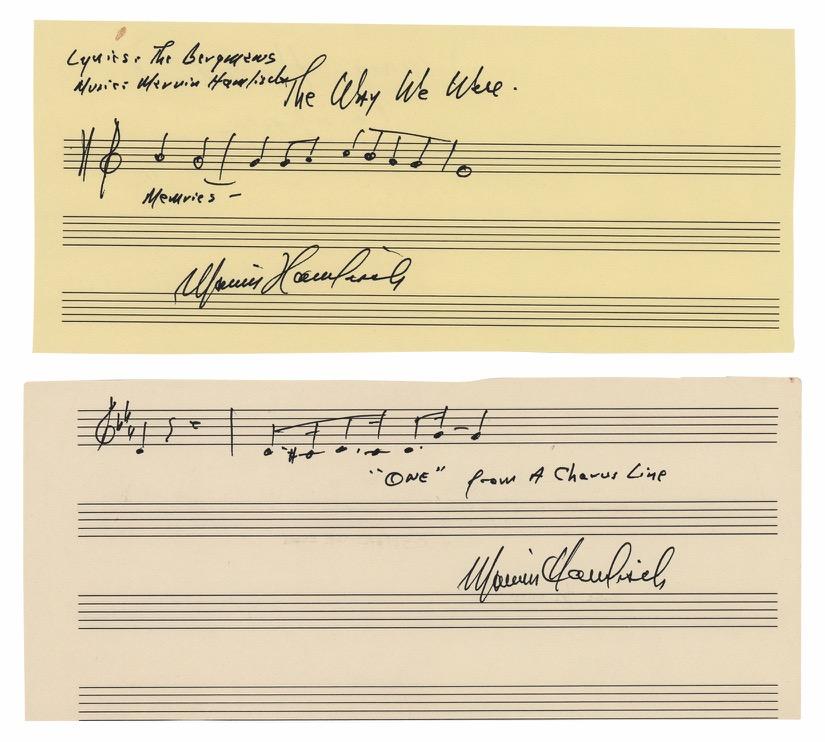 Lyrics: The Bergmans
Music: Marvin Hamlisch
The Way We Were.
Memries –
Marvin Hamlisch
"ONE" from A Chorus Line
Marvin Hamlisch